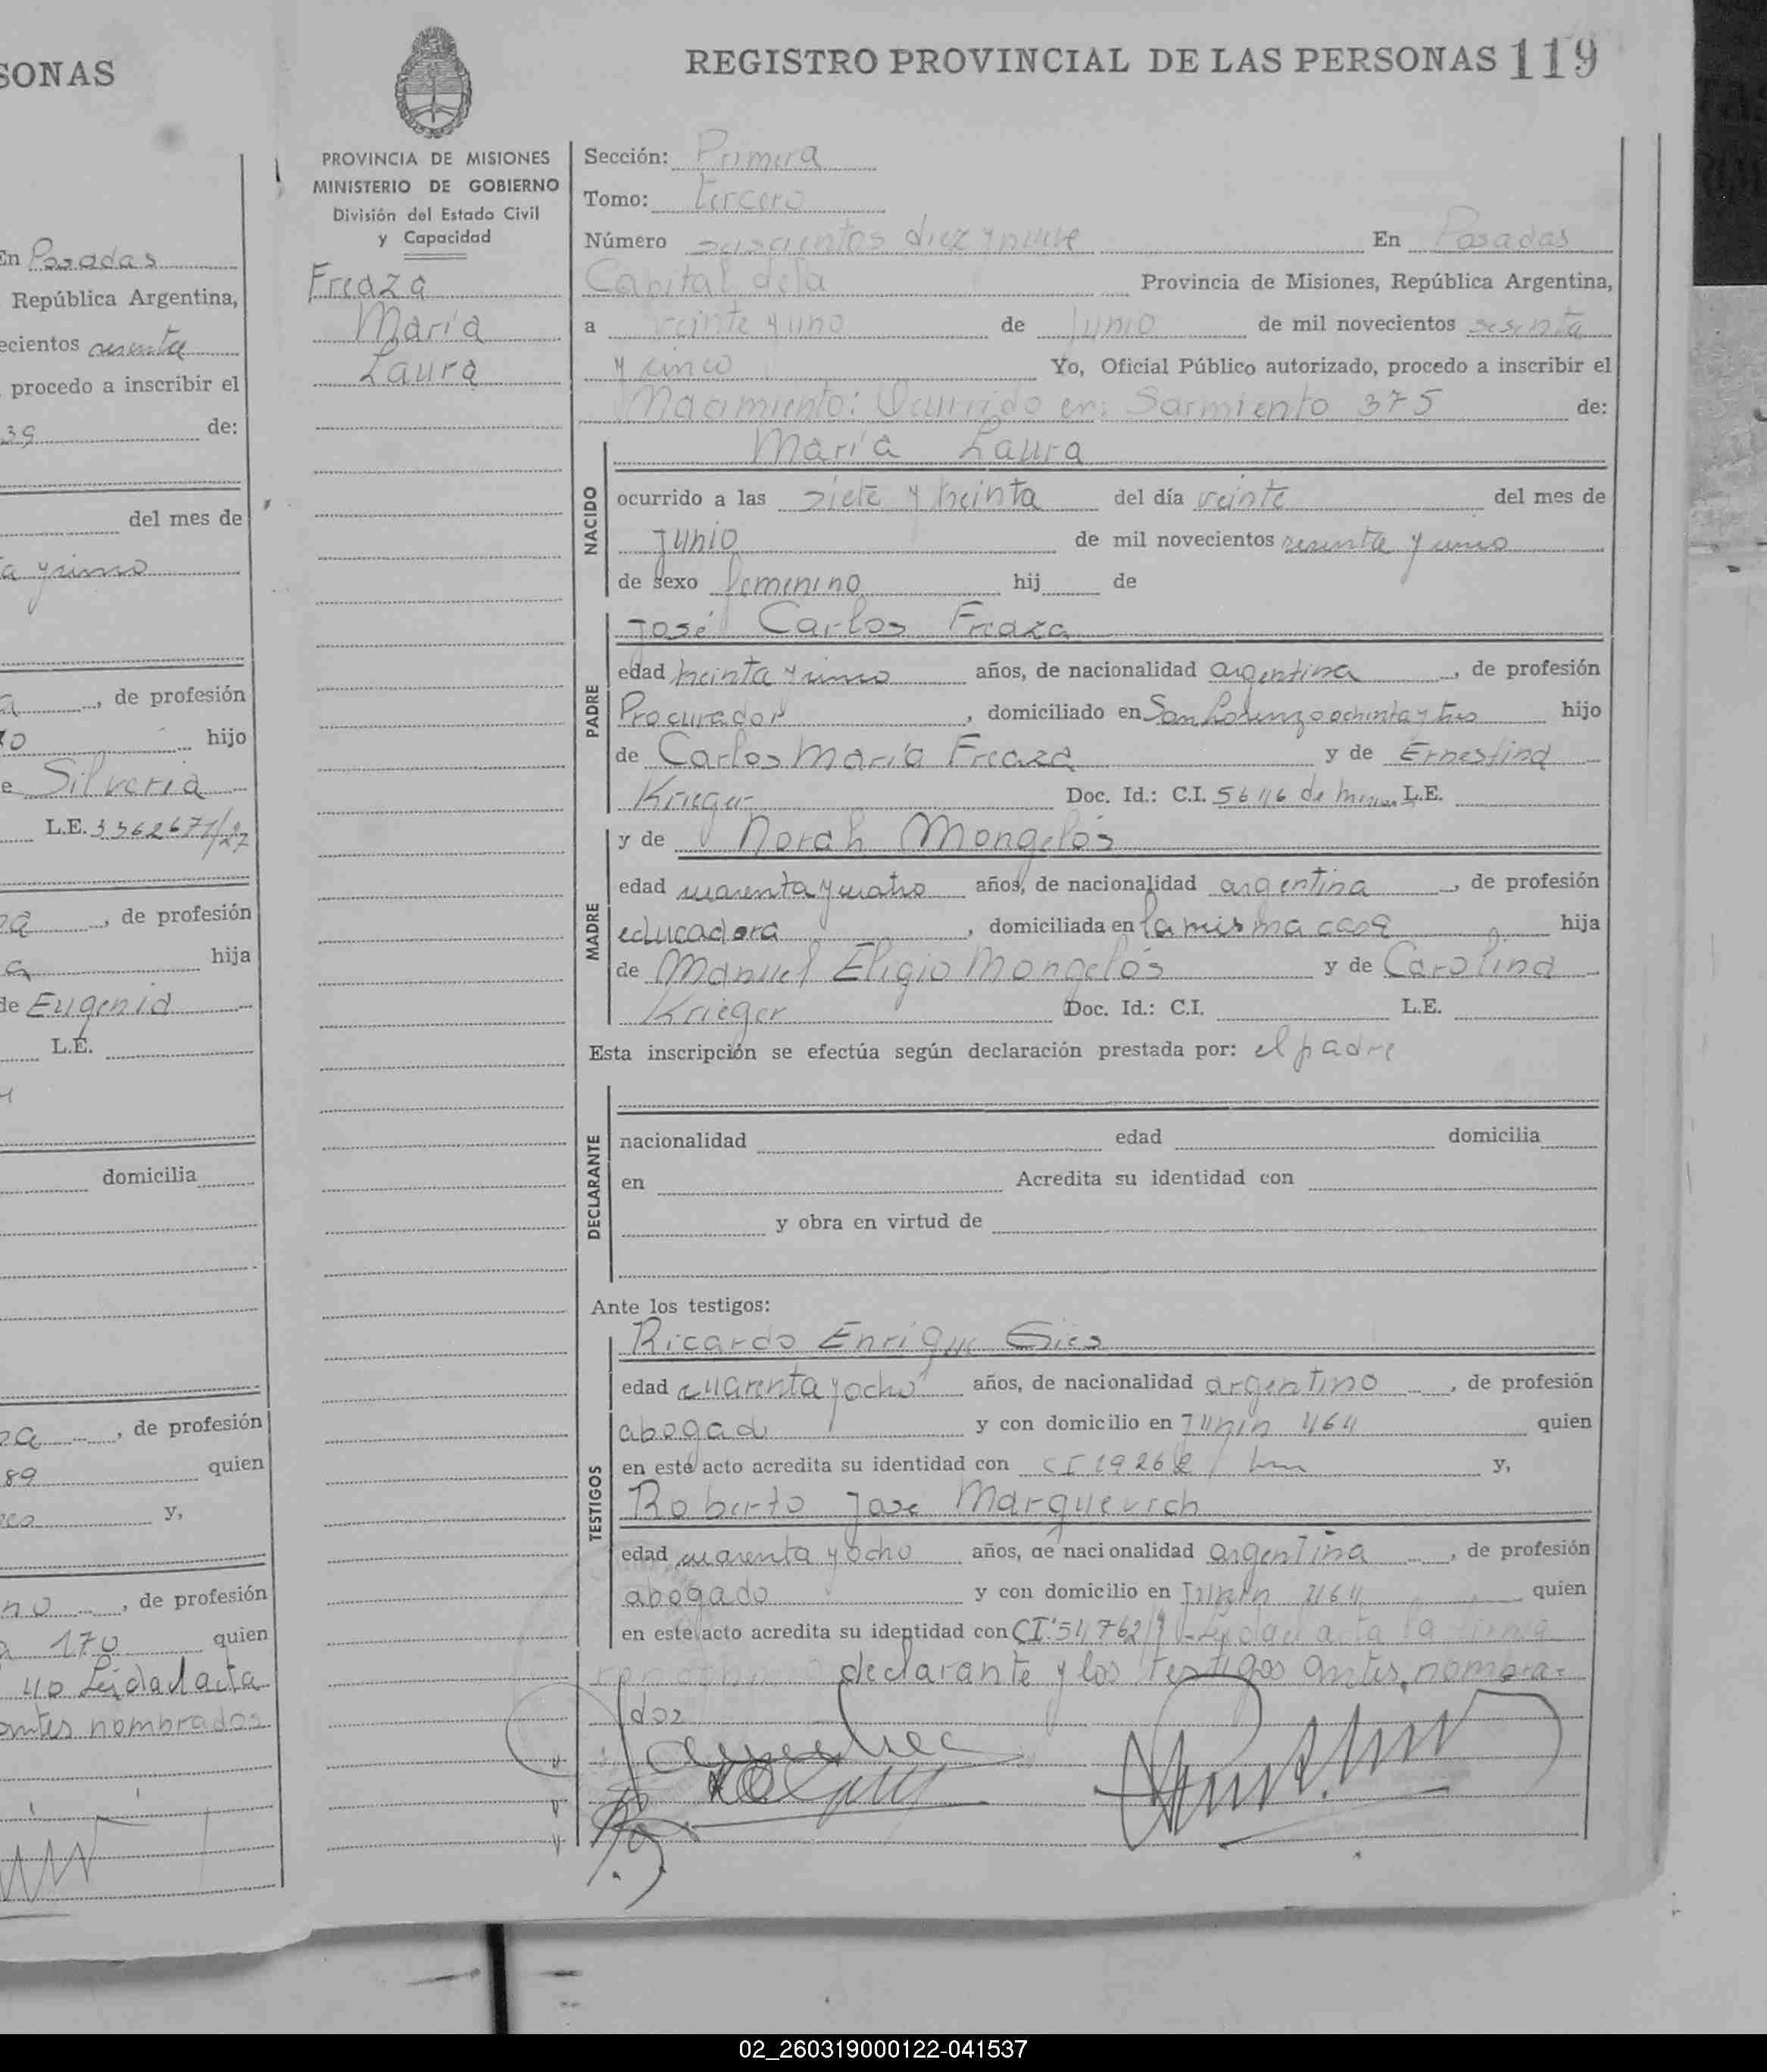 SONAS
En Posadas
República Argentina,
ecientos sesenta
procedo a inscribir el
39 de:
del mes de
de profesión
hijo
e Silveria
L.E. 3362671/27
, de profesión
hija
de Eugenia
L.E.
domicilia
, de profesión
89 quien
y,
no , de profesión
170 quien
40 Leida el acta
antes nombrados
REGISTRO PROVINCIAL DE LAS PERSONAS 119
PROVINCIA DE MISIONES
MINISTERIO DE GOBIERNO
División del Estado Civil
y Capacidad
Freaza
María
Laura
Sección: Primera
Tomo: tercero
Número seiscientos diez y nueve En Posadas
Capital de la Provincia de Misiones, República Argentina,
a veinte y uno de Junio de mil novecientos sesenta
y cinco Yo, Oficial Público autorizado, procedo a inscribir el
Nacimiento: Ocurrido en: Sarmiento 375 de:
María Laura
NACIDO
ocurrido a las siete y treinta del día veinte del mes de
Junio de mil novecientos sesenta y
de sexo femenino hij de
José Carlos Freaza
PADRE
edad treinta y años, de nacionalidad argentina, de profesión
Procurador, domiciliado en San Lorenzo ochenta y tres hijo
de Carlos María Freaza y de Ernestina
Krieger Doc. Id.: C.I. 5646 de L.E.
y de Norah Mongelós
MADRE
edad cuarenta y cuatro años, de nacionalidad argentina, de profesión
educadora, domiciliada en la misma casa hija
de Manuel Eligio Mongelós y de Carolina
Krieger Doc. Id.: C.I. L.E.
Esta inscripción se efectúa según declaración prestada por: el padre
DECLARANTE
nacionalidad edad domicilia
en Acredita su identidad con
y obra en virtud de
Ante los testigos:
Ricardo Enrique
TESTIGOS
edad cuarenta y ocho años, de nacionalidad argentino, de profesión
abogado y con domicilio en Junin 464 quien
en este acto acredita su identidad con CI y,
Roberto Jose Marguevich
edad cuarenta y ocho años, de nacionalidad argentina, de profesión
abogado y con domicilio en Junin quien
en este acto acredita su identidad con CI Leida el acta la firma
declarante y los testigos antes nombra-
dos
02_260319000122-041537